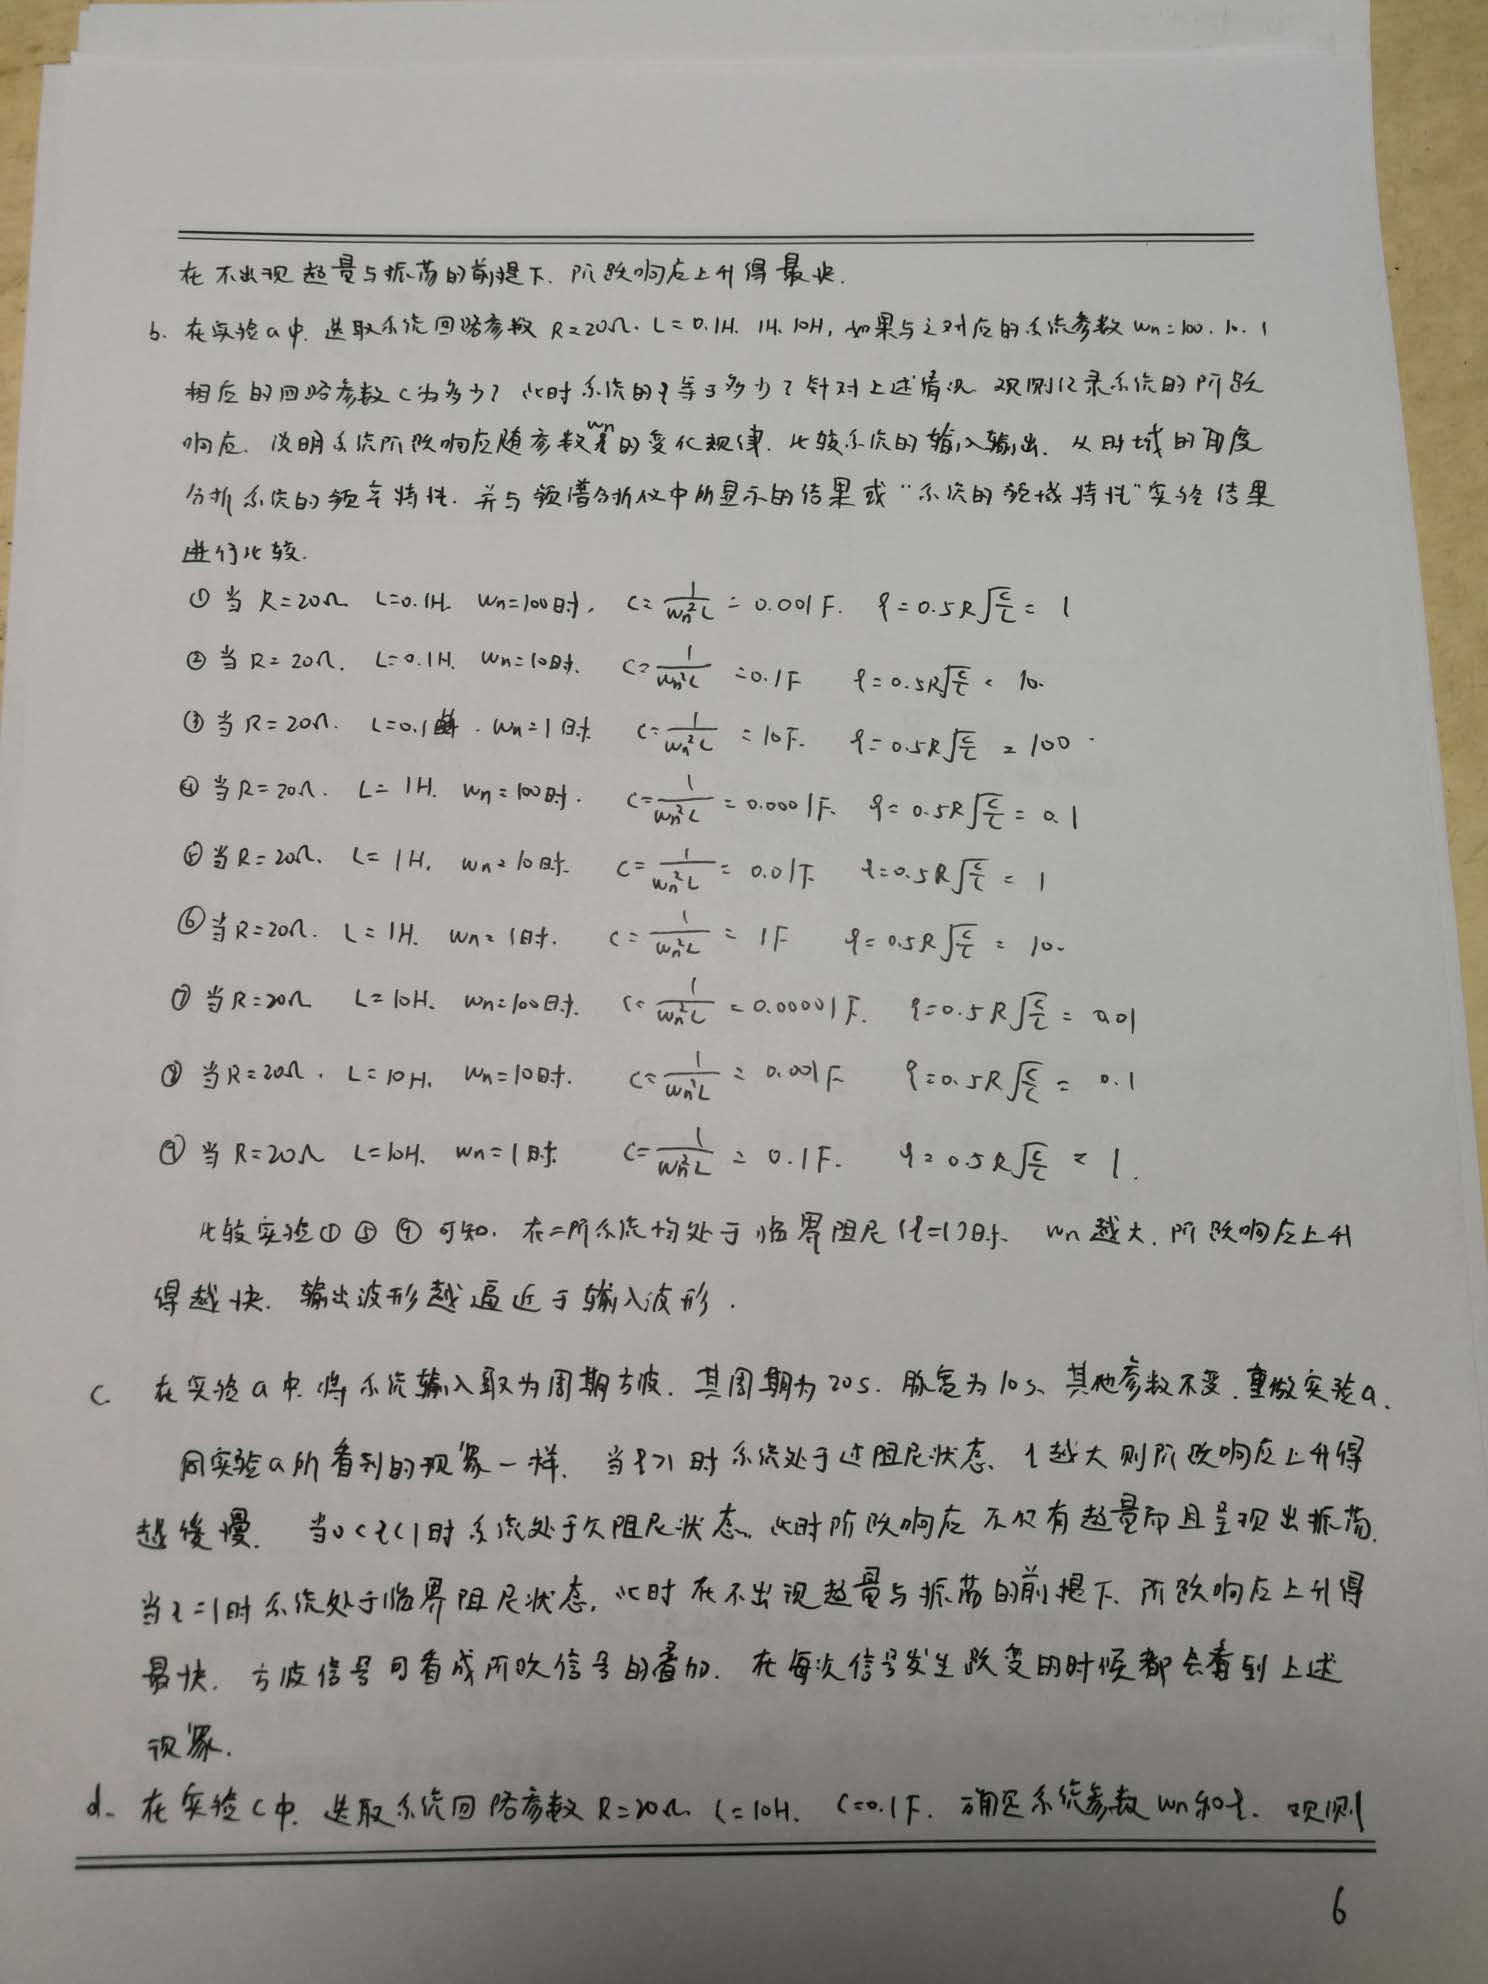 在不出现超量与振荡的前提下.阶跃响应上升得最快.
b. 在实验a中.选取系统回路参数 R=20Ω. L=0.1H. 1H. 10H, 如果与之对应的系统参数 Wn=100. 10. 1
相应的回路参数C为多少? 此时系统的ξ等于多少? 针对上述情况 观测记录系统的阶跃
响应. 说明系统阶跃响应随参数Wn的变化规律. 比较系统的输入输出. 从时域的角度
分析系统的频率特性. 并与频谱分析仪中所显示的结果或“系统的频域特性”实验结果
进行比较.
① 当 R=20Ω L=0.1H. Wn=100时, C=1/(Wn²L) = 0.001F. ξ=0.5R√(C/L) = 1
② 当 R=20Ω. L=0.1H. Wn=10时. C=1/(Wn²L) =0.1F ξ=0.5R√(C/L) = 10.
③ 当 R=20Ω. L=0.1H. Wn=1时 C=1/(Wn²L) =10F. ξ=0.5R√(C/L) = 100
④ 当 R=20Ω. L=1H. Wn=100时. C=1/(Wn²L) =0.0001F. ξ=0.5R√(C/L) = 0.1
⑤ 当 R=20Ω. L=1H. Wn=10时. C=1/(Wn²L) = 0.01F ξ=0.5R√(C/L) = 1
⑥ 当 R=20Ω. L=1H. Wn=1时. C=1/(Wn²L) = 1F ξ=0.5R√(C/L) = 10.
⑦ 当 R=20Ω L=10H. Wn=100时. C=1/(Wn²L) =0.00001F. ξ=0.5R√(C/L) = 0.01
⑧ 当 R=20Ω. L=10H. Wn=10时. C=1/(Wn²L) = 0.001F ξ=0.5R√(C/L) = 0.1
⑨ 当 R=20Ω L=10H. Wn=1时. C=1/(Wn²L) = 0.1F. ξ=0.5R√(C/L) = 1.
比较实验①⑤⑨可知. 在二阶系统均处于临界阻尼(ξ=1)时、Wn越大. 阶跃响应上升
得越快. 输出波形越逼近于输入波形.
c. 在实验a中.将系统输入取为周期方波. 其周期为20s. 脉宽为10s、其他参数不变.重做实验a.
同实验a所看到的现象一样. 当ξ>1时系统处于过阻尼状态、ξ越大则阶跃响应上升得
越缓慢. 当0<ξ<1时系统处于欠阻尼状态. 此时阶跃响应不仅有超量而且呈现出振荡.
当ξ=1时系统处于临界阻尼状态. 此时在不出现超量与振荡的前提下. 阶跃响应上升得
最快. 方波信号可看成阶跃信号的叠加. 在每次信号发生跃变的时候都会看到上述
现象.
d. 在实验C中. 选取系统回路参数R=20Ω L=10H. C=0.1F. 确定系统参数Wn和ξ. 观测
6